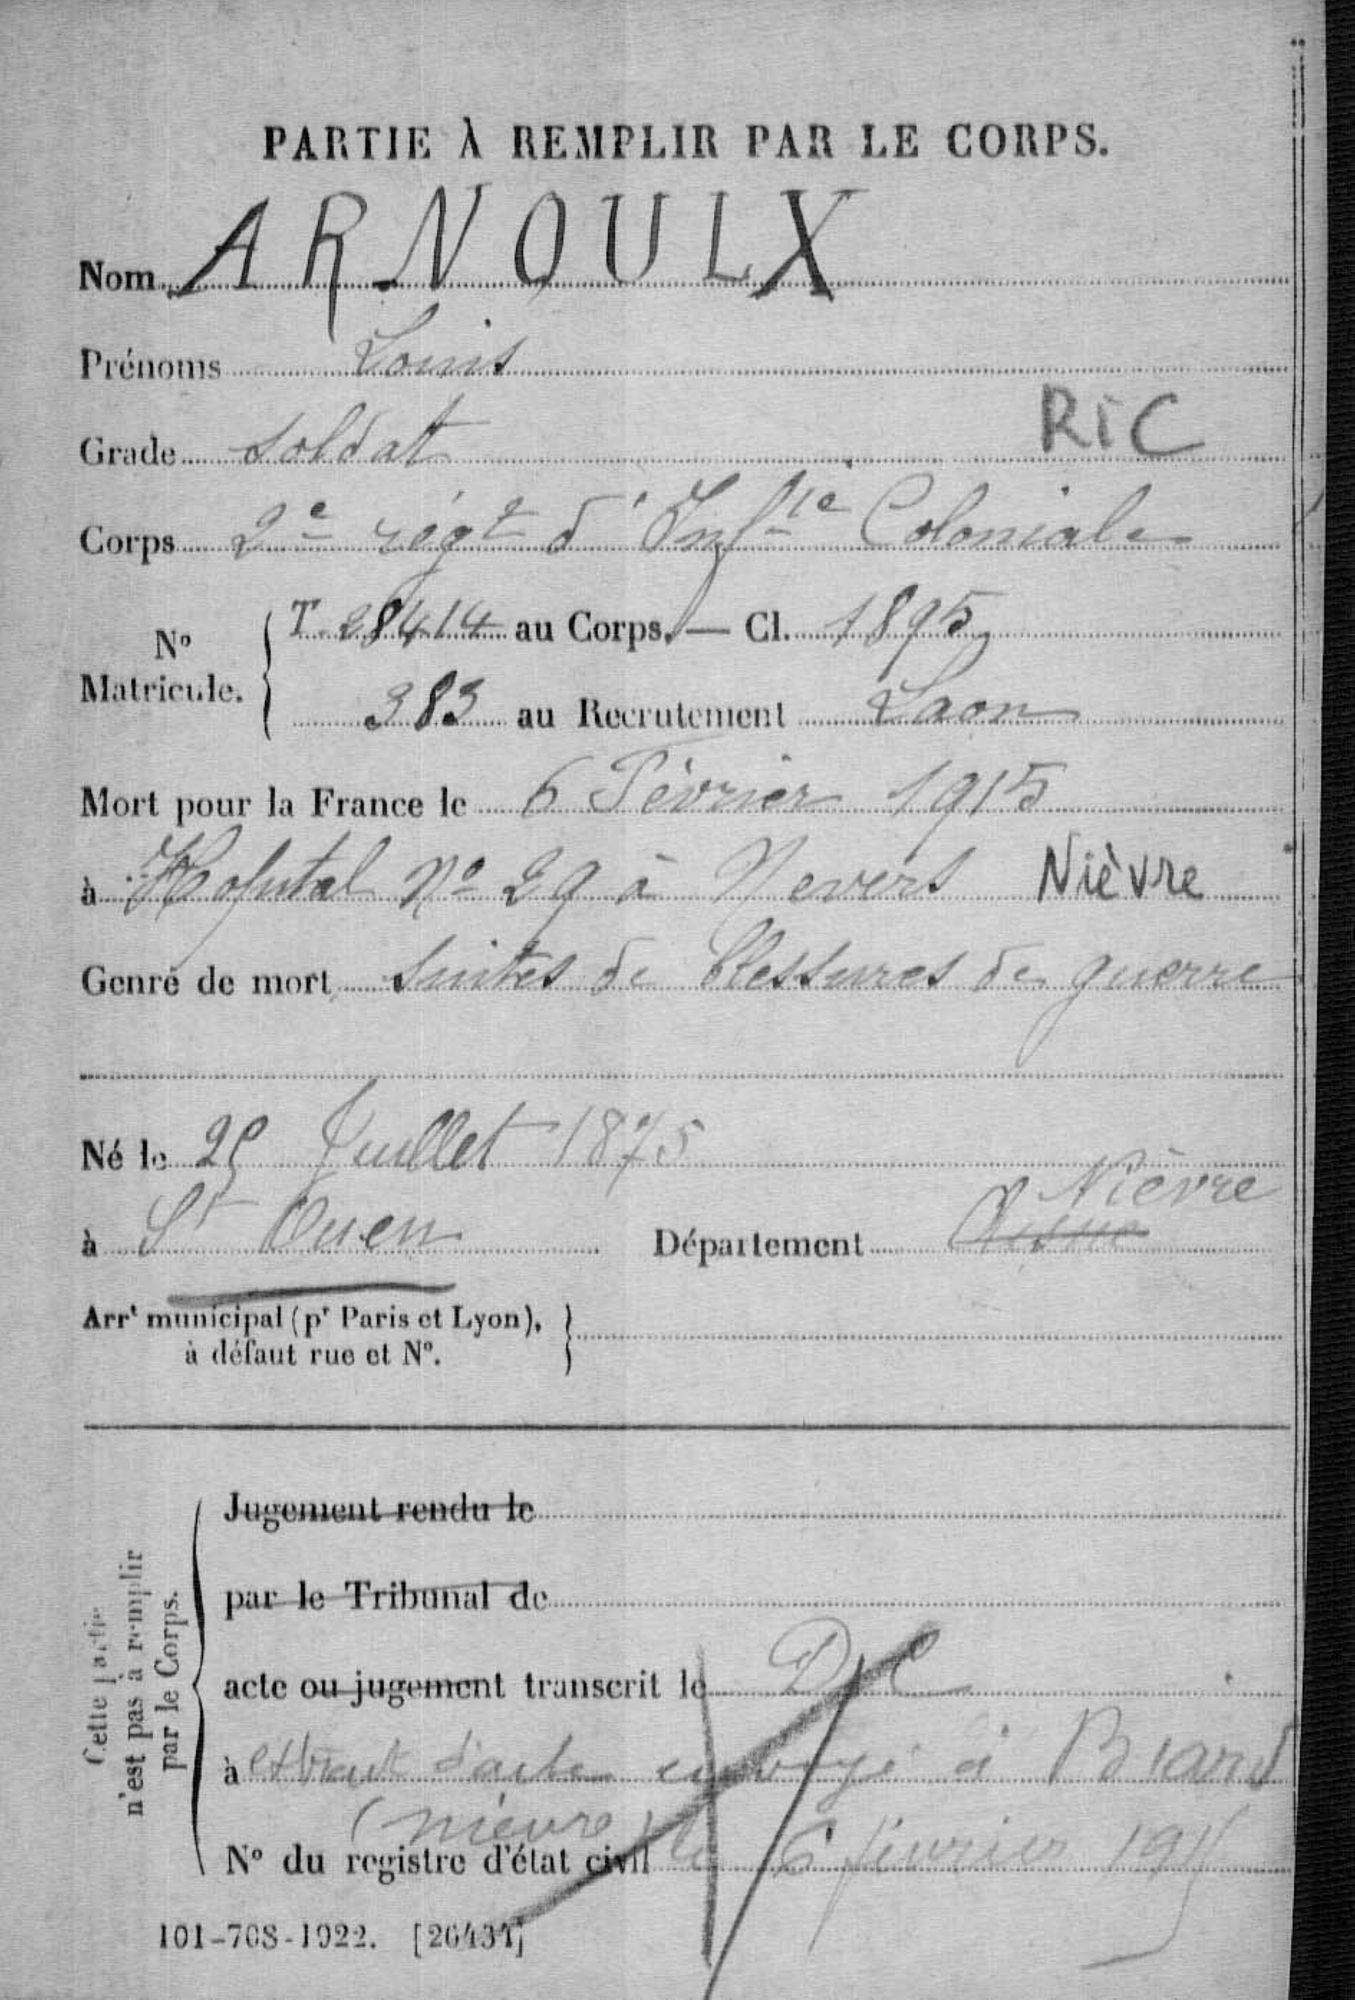 PARTIE À REMPLIR PAR LE CORPS.
Nom ARNOULX
Prénoms Louis
Grade soldat RIC
Corps 2e régt d'Inftie Coloniale
No Matricule. T. 28414 au Corps. — Cl. 1895
383 au Recrutement Laon
Mort pour la France le 6 Février 1915
à Hopital No 29 à Nevers Nièvre
Genre de mort suites de blessures de guerre
Né le 25 Juillet 1875
Nièvre
à St Ouen Département Aisne
Arrt municipal (pr Paris et Lyon),
à défaut rue et No.
Cette partie n'est pas à remplir par le Corps.
Jugement rendu le
par le Tribunal de
acte ou jugement transcrit le D C
à extrait d'acte envoyé à Biard
(nièvre) le 6 février 1915
No du registre d'état civil
101-708-1922. [26434]